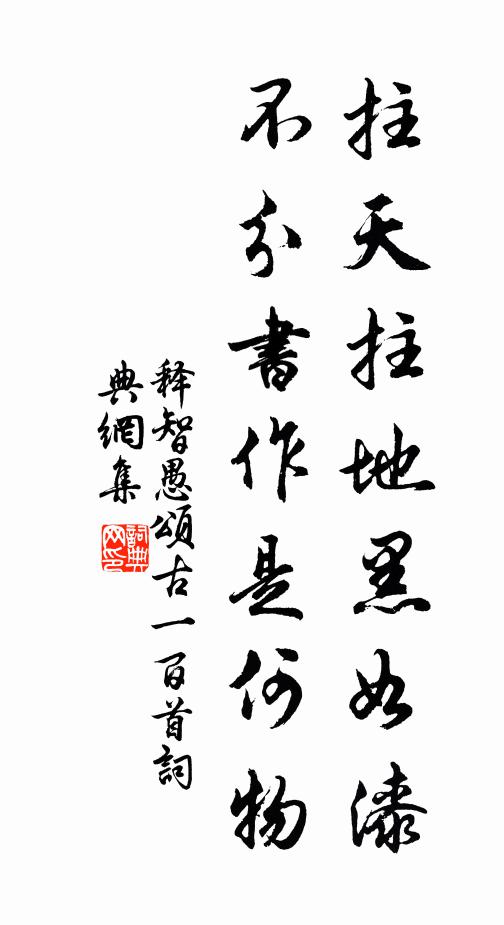 拄天拄地黑如漆
不分書作是何物
释智愚頌古一百首詞
典網集
詞典
网印